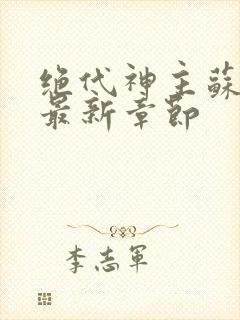 绝代神主蘇
最新章节
李志軍